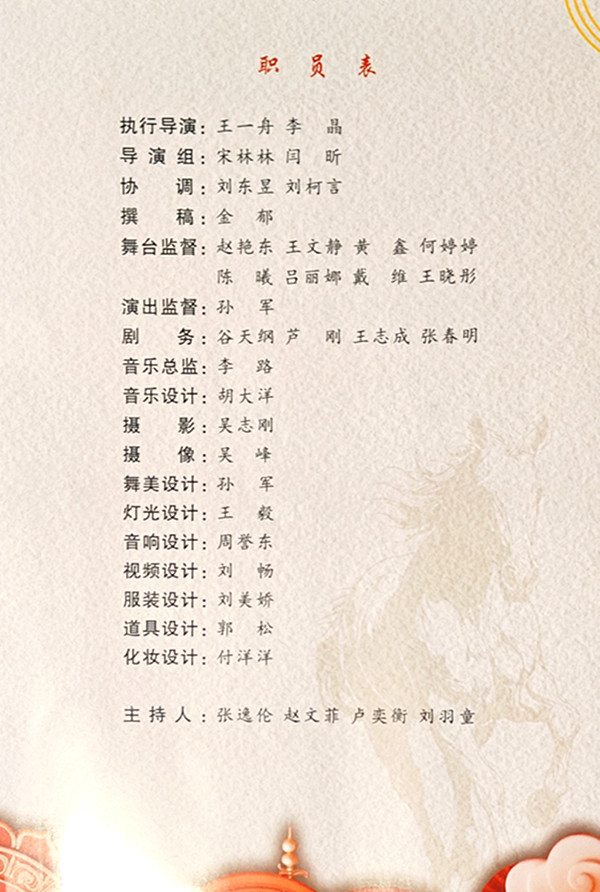 职 员 表
执行导演：王一舟 李　晶
导 演 组：宋林林 闫　昕
协　　调：刘东昱 刘柯言
撰　　稿：金　郁
舞台监督：赵艳东 王文静 黄　鑫 何婷婷
陈　曦 吕丽娜 戴　维 王晓彤
演出监督：孙　军
剧　　务：谷天纲 芦　刚 王志成 张春明
音乐总监：李　路
音乐设计：胡大洋
摄　　影：吴志刚
摄　　像：吴　峰
舞美设计：孙　军
灯光设计：王　毅
音响设计：周誉东
视频设计：刘　畅
服装设计：刘美娇
道具设计：郭　松
化妆设计：付洋洋
主 持 人：张逸伦 赵文菲 卢奕衡 刘羽童